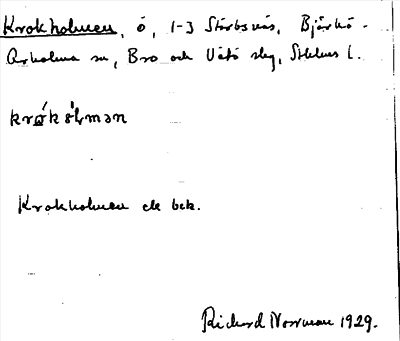 Krokholmen, ö, 1-3 Storbsnäs, Björkö-
Arholma sn, Bro och Vätö slg, Sthlms l.
krωkölmən
Krokholmen ek bek.
Richard Norrman 1929.